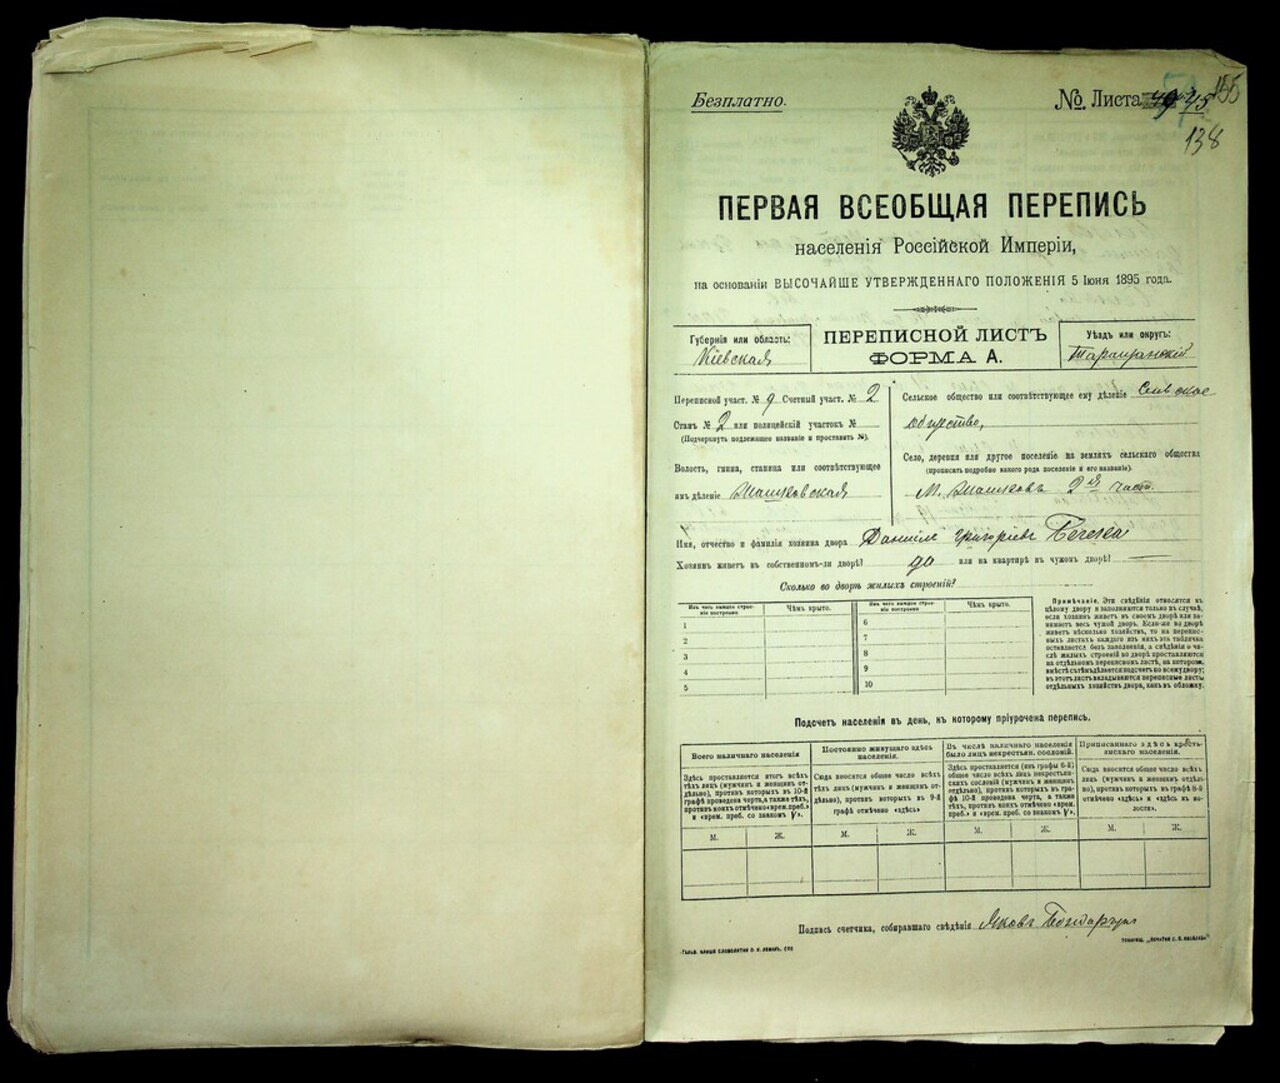 Безплатно.
№. Листа 45
155
138
ПЕРВАЯ ВСЕОБЩАЯ ПЕРЕПИСЬ
населенія Россійской Имперіи,
на основаніи ВЫСОЧАЙШЕ УТВЕРЖДЕННАГО ПОЛОЖЕНІЯ 5 Іюня 1895 года.
Губернія или область:
Кіевская
ПЕРЕПИСНОЙ ЛИСТЪ
ФОРМА А.
Уѣздъ или округъ:
Таращанскій
Переписной участ. № 9 Счетный участ. № 2
Станъ № 2 или полицейскій участокъ №
(Подчеркнуть подлежащее названіе и проставить №).
Волость, гмина, станица или соотвѣтствующее
имъ дѣленіе
Сельское общество или соотвѣтствующее ему дѣленіе Сельское
общество,
Село, деревня или другое поселеніе на земляхъ сельскаго общества
(прописать подробно какого рода поселеніе и его названіе).
М. 2я част.
Имя, отчество и фамилія хозяина двора Даніилъ Григоріевъ
Хозяинъ живетъ въ собственномъ-ли дворѣ? да или на квартирѣ въ чужомъ дворѣ? —
Сколько во дворѣ жилыхъ строеній?
Изъ чего каждое строе-
ніе построено
Чѣмъ крыто.
Изъ чего каждое строе-
ніе построено
Чѣмъ крыто.
1
2
3
4
5
6
7
8
9
10
Примѣчаніе. Эти свѣдѣнія относятся къ
цѣлому двору и заполняются только въ случаѣ,
если хозяинъ живетъ въ своемъ дворѣ или за-
нимаетъ весь чужой дворъ. Если-же во дворѣ
живетъ нѣсколько хозяйствъ, то на перепис-
ныхъ листахъ каждаго изъ нихъ эта табличка
оставляется безъ заполненія, а свѣдѣнія о чи-
слѣ жилыхъ строеній во дворѣ проставляются
на отдѣльномъ переписномъ листѣ, на которомъ
вмѣстѣ съ тѣмъ дѣлается подсчетъ по всему двору;
въ этотъ листъ вкладываются переписные листы
отдѣльныхъ хозяйствъ двора, какъ въ обложку.
Подсчетъ населенія въ день, къ которому пріурочена перепись.
Всего наличнаго населенія
Здѣсь проставляется итогъ всѣхъ
тѣхъ лицъ (мужчинъ и женщинъ от-
дѣльно), противъ которыхъ въ 10-й
графѣ проведена черта, а также тѣхъ,
противъ коихъ отмѣчено «врем. преб.»
и «врем. преб. со знакомъ V».
Постоянно живущаго здѣсь
населенія.
Сюда вносится общее число всѣхъ
тѣхъ лицъ (мужчинъ и женщинъ от-
дѣльно), противъ которыхъ въ 9-й
графѣ отмѣчено «здѣсь»
Въ числѣ наличнаго населенія
было лицъ некрестьян. сословій.
Здѣсь проставляется (изъ графы 6-й)
общее число всѣхъ лицъ некрестьян-
скихъ сословій (мужчинъ и женщинъ
отдѣльно), противъ которыхъ въ гра-
фѣ 10-й проведена черта, а также
тѣхъ, противъ коихъ отмѣчено «врем.
преб.» и «врем. преб. со знакомъ V».
Приписаннаго здѣсь кресть-
янскаго населенія.
Сюда вносится общее число всѣхъ
лицъ (мужчинъ и женщинъ отдѣль-
но), противъ которыхъ въ графѣ 8-й
отмѣчено «здѣсь» и «здѣсь въ во-
лости».
М. Ж. М. Ж. М. Ж. М. Ж.
Подпись счетчика, собиравшаго свѣдѣнія Яковъ